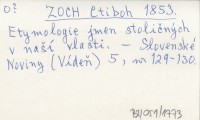 O?
ZOCH Ctiboh 1853.
Etymologie jmen stoličných
v naší vlasti. – Slovenské
Noviny (Vídeň) 5, nr 129-130.